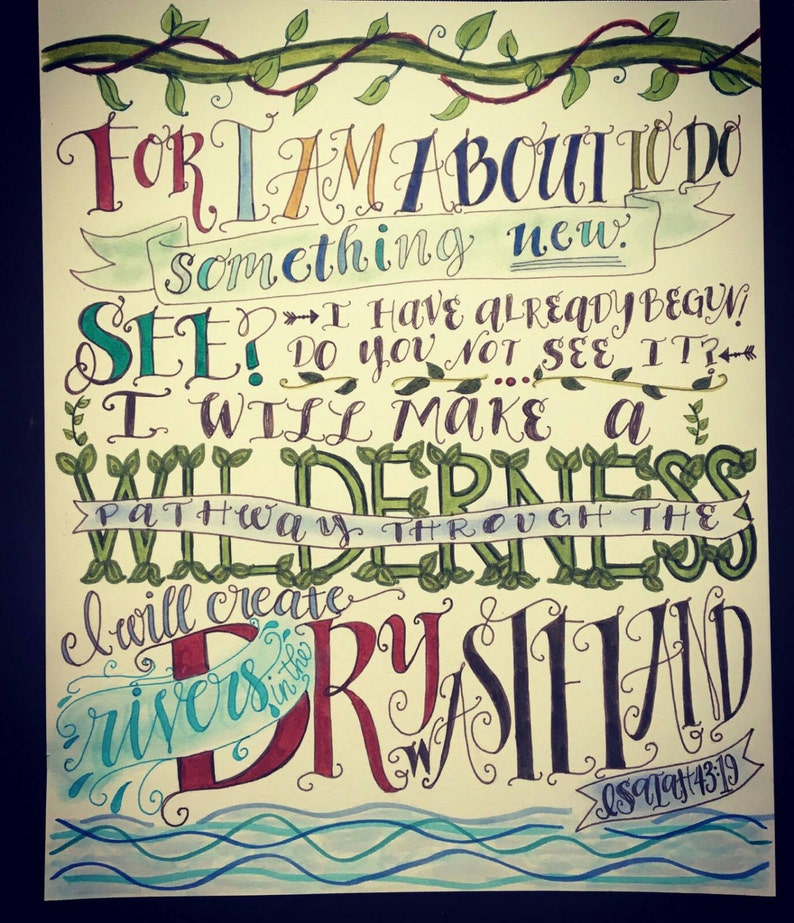 FOR I AM ABOUT TO DO
something new.
SEE? I HAVE ALREADY BEGUN!
DO YOU NOT SEE IT?
I WILL MAKE A
PATHWAY THROUGH THE
WILDERNESS
I will create
rivers in the
DRY WASTELAND
ISAIAH 43:19